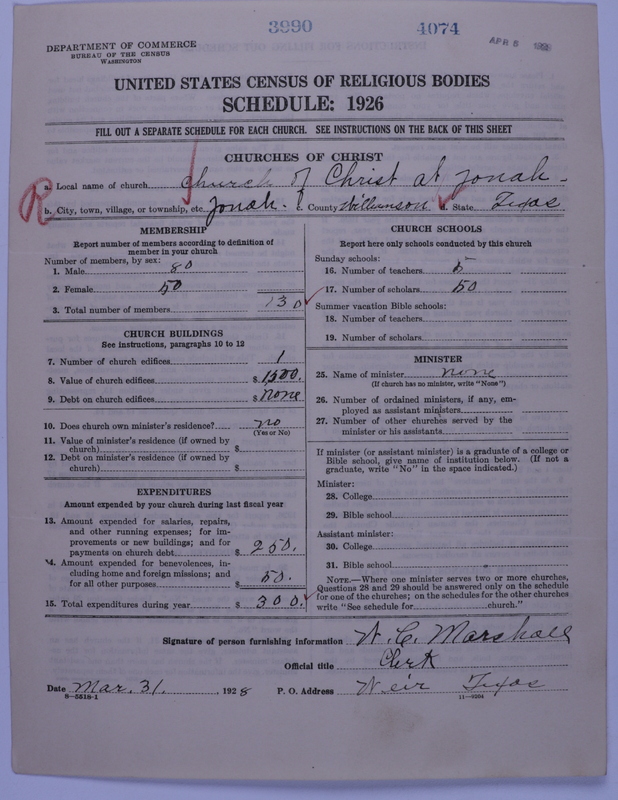 3990 4074
APR 5
DEPARTMENT OF COMMERCE
BUREAU OF THE CENSUS
WASHINGTON
UNITED STATES CENSUS OF RELIGIOUS BODIES
SCHEDULE: 1926
FILL OUT A SEPARATE SCHEDULE FOR EACH CHURCH. SEE INSTRUCTIONS ON THE BACK OF THIS SHEET
CHURCHES OF CHRIST
R
a. Local name of church Church of Christ at Jonah
b. City, town, village, or township, etc. Jonah. c. County Williamson d. State Texas
MEMBERSHIP
Report number of members according to definition of
member in your church
Number of members, by sex:
1. Male 80
2. Female 50
3. Total number of members 130
CHURCH BUILDINGS
See instructions, paragraphs 10 to 12
7. Number of church edifices 1
8. Value of church edifices $ 1500.
9. Debt on church edifices $ None
10. Does church own minister's residence? no
(Yes or No)
11. Value of minister's residence (if owned by
church) $
12. Debt on minister's residence (if owned by
church) $
EXPENDITURES
Amount expended by your church during last fiscal year
13. Amount expended for salaries, repairs,
and other running expenses; for im-
provements or new buildings; and for
payments on church debt $ 250.
14. Amount expended for benevolences, in-
cluding home and foreign missions; and
for all other purposes 50.
15. Total expenditures during year $ 300.
CHURCH SCHOOLS
Report here only schools conducted by this church
Sunday schools:
16. Number of teachers 5
17. Number of scholars 50
Summer vacation Bible schools:
18. Number of teachers
19. Number of scholars
MINISTER
25. Name of minister none
(If church has no minister, write "None")
26. Number of ordained ministers, if any, em-
ployed as assistant ministers
27. Number of other churches served by the
minister or his assistants
If minister (or assistant minister) is a graduate of a college or
Bible school, give name of institution below. (If not a
graduate, write "No" in the space indicated.)
Minister:
28. College
29. Bible school
Assistant minister:
30. College
31. Bible school
NOTE.—Where one minister serves two or more churches,
Questions 28 and 29 should be answered only on the schedule
for one of the churches; on the schedules for the other churches
write "See schedule for church."
Signature of person furnishing information W. C. Marshall
Official title Clerk
Date Mar. 31. 1928 P. O. Address Weir Texas
8-5518-1 11-9204